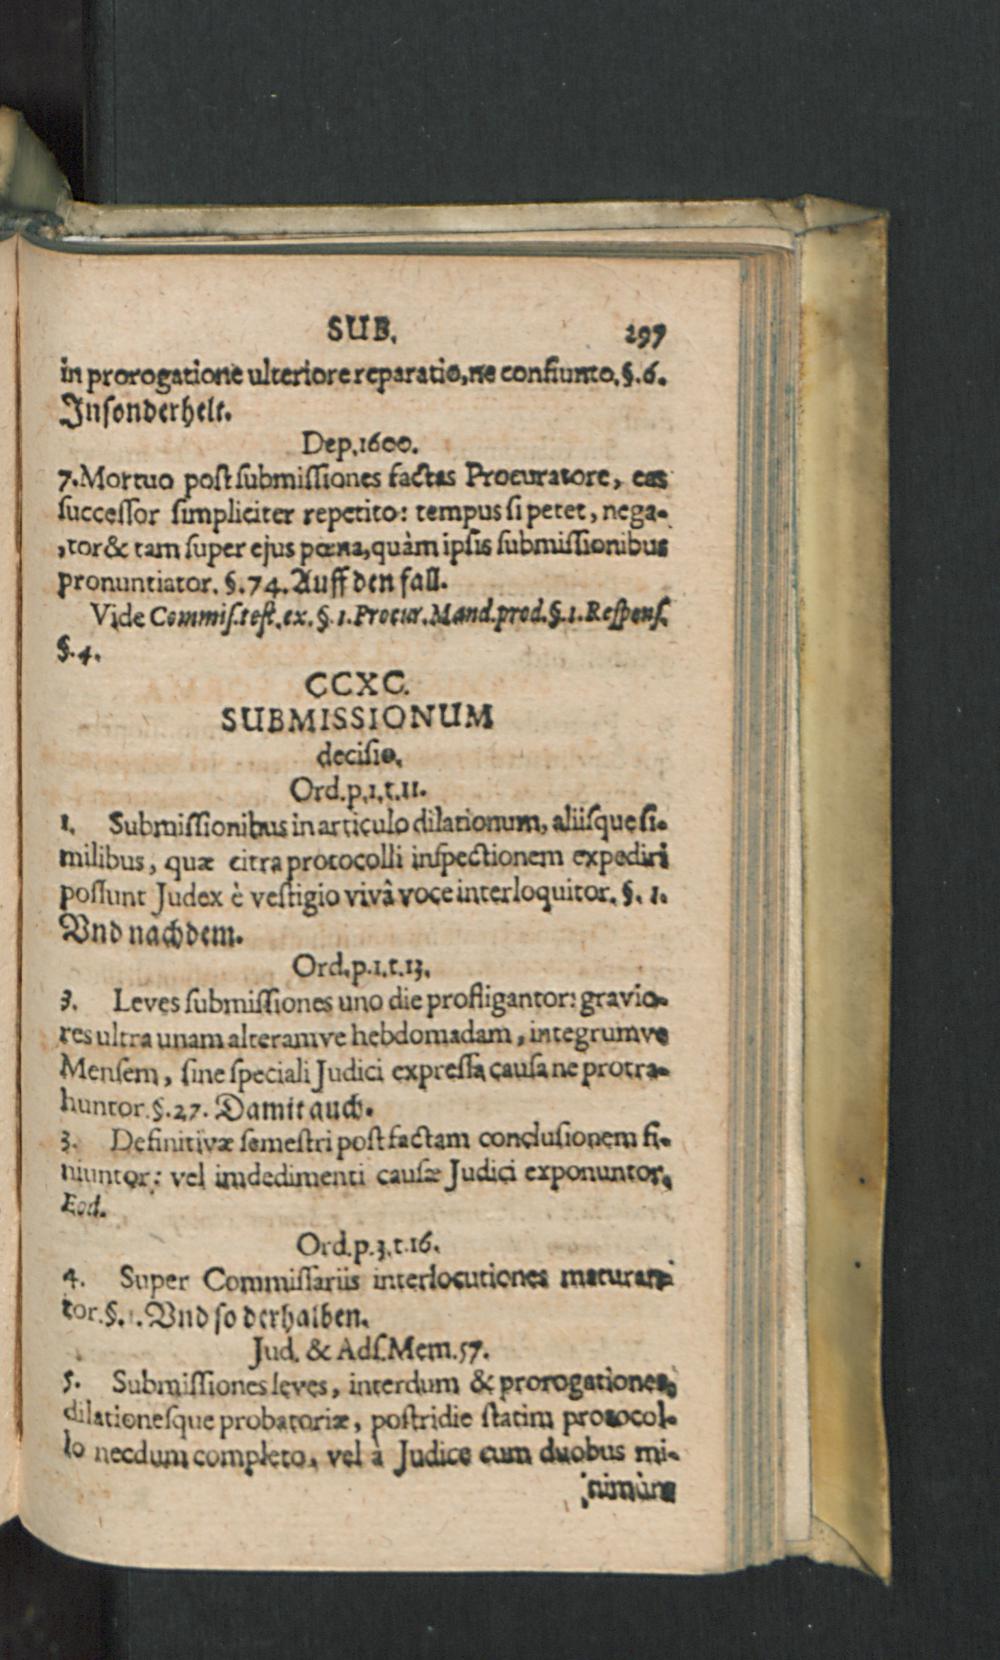 SUB. 297
in prorogatione ulteriore reparatio, ne confiunto. §. 6.
Jnſonderheit.
Dep. 1600.
7. Mortuo poſt ſubmiſſiones factas Procuratore, eas
ſucceſſor ſimpliciter repetito: tempus ſi petet, nega-
,tor & tam ſuper ejus pœna, quàm ipſis ſubmiſſionibus
pronuntiator. §. 74. Auff den fall.
Vide Commiſ. teſt. ex. §. 1. Procur. Mand. prod. §. 1. Reſponſ.
§. 4.
CCXC.
SUBMISSIONUM
deciſio.
Ord. p. 1. t. 11.
1. Submiſſionibus in articulo dilationum, aliiſque ſi-
milibus, quæ citra protocolli inſpectionem expediri
poſſunt Judex è veſtigio vivâ voce interloquitor. §. 1.
Vnd nachdem.
Ord. p. 1. t. 13.
3. Leves ſubmiſſiones uno die profligantor: gravio-
res ultra unam alteramve hebdomadam, integrumve
Menſem, ſine ſpeciali Judici expreſſa cauſa ne protra-
huntor. §. 27. Damit auch.
3. Definitivæ ſemeſtri poſt factam concluſionem fi-
niuntor: vel imdedimenti cauſæ Judici exponuntor,
Eod.
Ord. p. 3. t. 16.
4. Super Commiſſariis interlocutiones maturan-
tor. §. 1. Vnd ſo derhalben.
Jud. & Adſ. Mem. 57.
5. Submiſſiones leves, interdum & prorogationes,
dilationeſque probatoriæ, poſtridie ſtatim protocol-
lo necdum completo, vel à Judice cum duobus mi-
nimùm